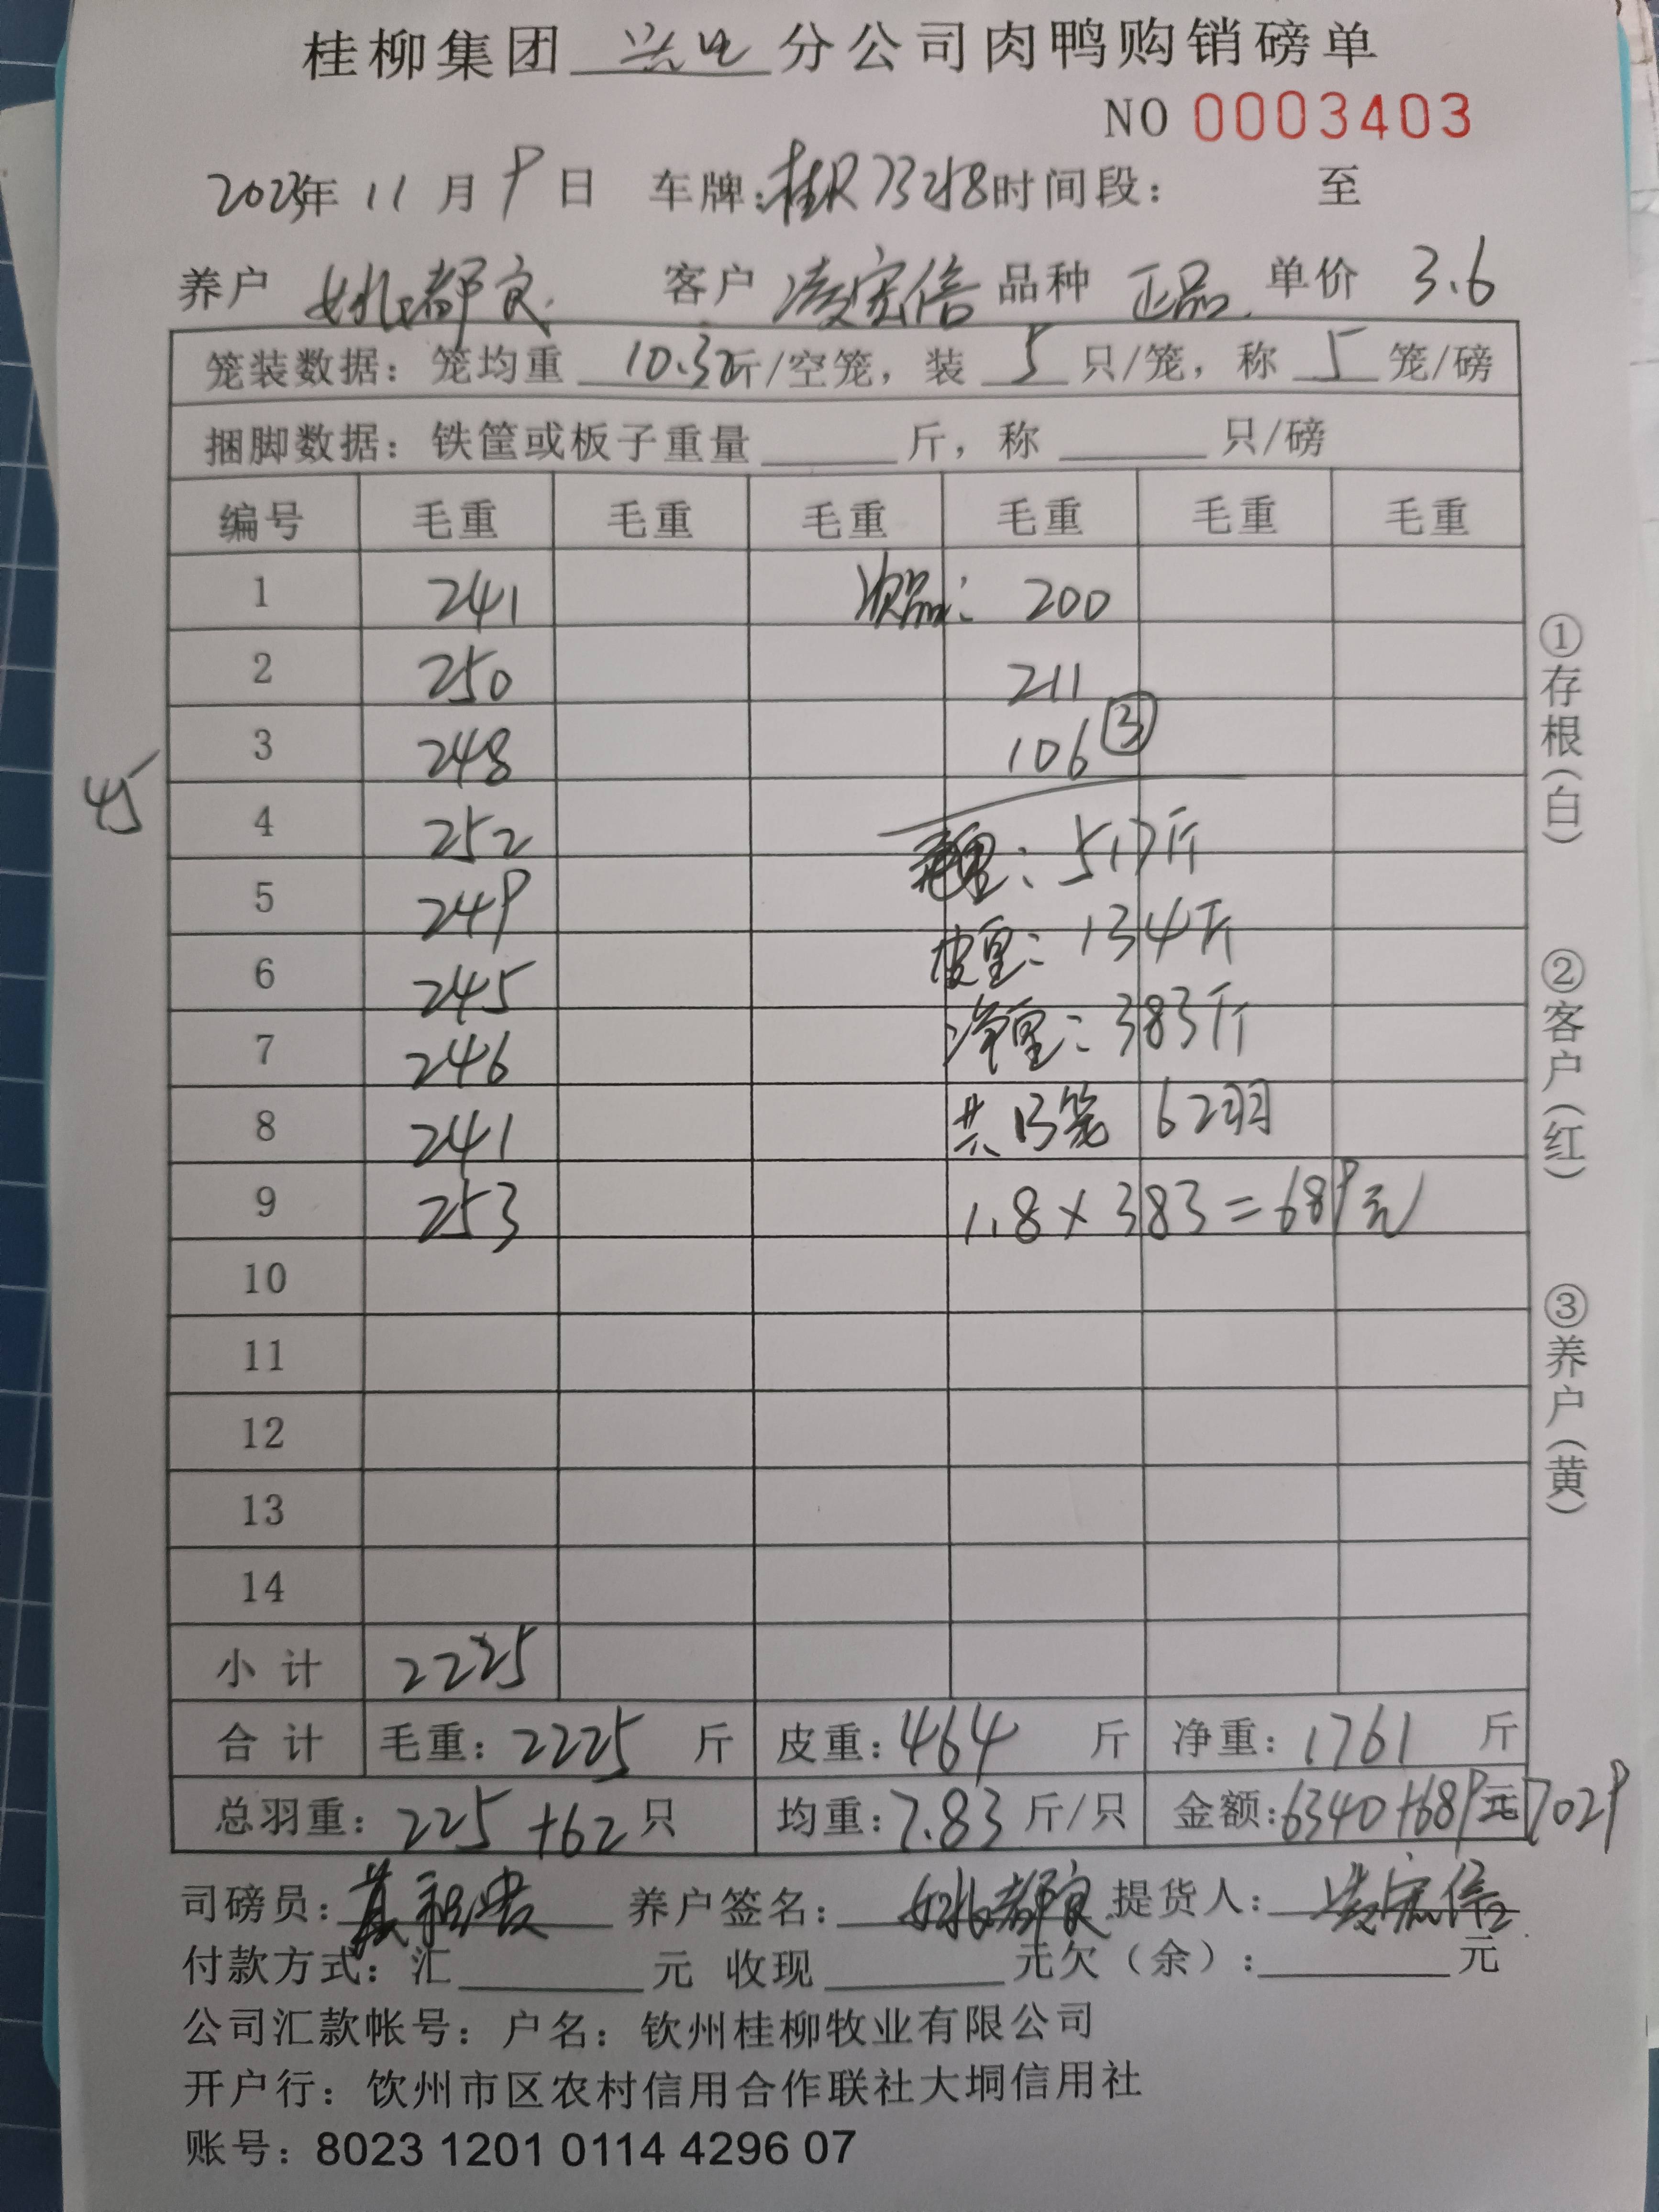 桂柳集团 分公司肉鸭购销磅单
NO 0003403
2023年 11 月 9 日 车牌:桂R 时间段: 至
养户 姚都良 客户 凌宏信 品种 正品 单价 3.6
笼装数据: 笼均重 10.3斤/空笼, 装 5 只/笼, 称 5 笼/磅
捆脚数据: 铁筐或板子重量 斤, 称 只/磅
编号 毛重 毛重 毛重 毛重 毛重 毛重
1 241 次品: 200
2 250 211
3 248 106 ③
45
4 252 毛重: 517斤
5 249
6 245 皮重: 134斤
7 246 净重: 383斤
8 241 共13笼 62羽
9 253 1.8×383=689元
10
11
12
13
14
小计 2225
合计 毛重: 2225 斤 皮重: 464 斤 净重: 1761 斤
总羽重: 225+62只 均重: 7.83斤/只 金额: 6340+689元 7029
司磅员: 养户签名: 姚都良 提货人: 凌宏信
付款方式: 汇 元 收现 元欠(余): 元
公司汇款帐号: 户名: 钦州桂柳牧业有限公司
开户行: 钦州市区农村信用合作联社大垌信用社
账号: 8023 1201 0114 4296 07
①存根(白)
②客户(红)
③养户(黄)